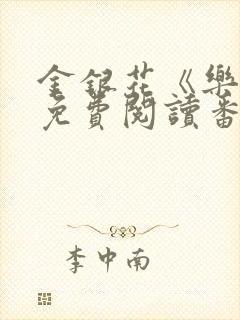 金銀花《樂
免費閱讀番
李中南